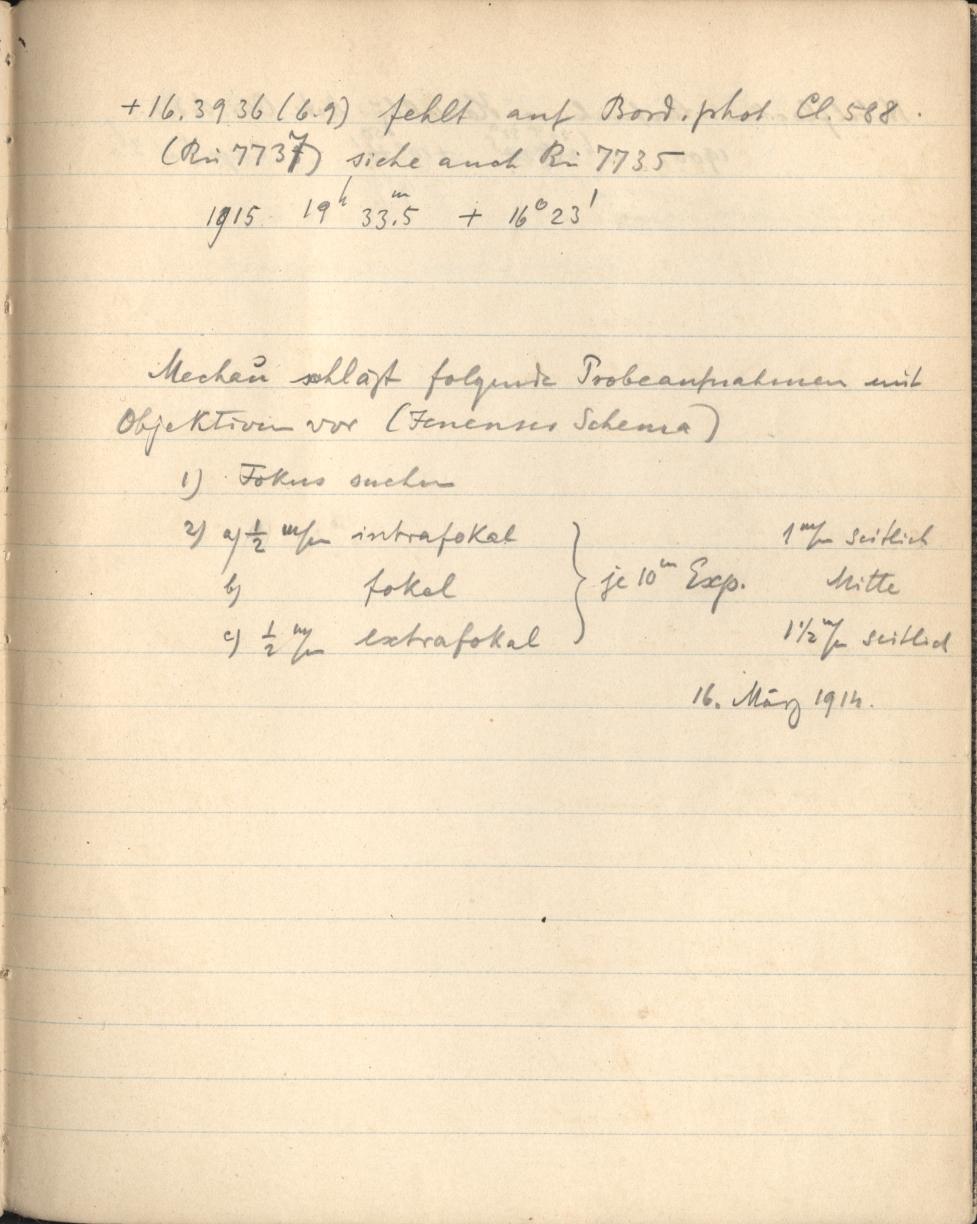 +16.3936 (6.9) fehlt auf Bord. phot. Cl. 588.
(Rü 7737) siehe auch Rü 7735
1915 19ʰ 33.ᵐ5 + 16° 23'
Mechau schlägt folgende Probeaufnahmen mit
Objektiven vor (Jenenser Schema)
1) Fokus suchen
2) a) 1/2 m/m intrafokal 1 m/m seitlich
b) fokal } je 10ᵐ Exp. Mitte
c) 1/2 m/m extrafokal 1 1/2 m/m seitlich
16. März 1914.